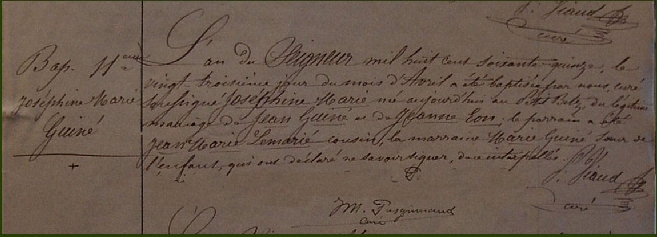 J. Giaud
curé
Bap. 11eme
Joséphine Marie
Guiné
+
L'an du Seigneur mil huit cent soixante-quinze, le
vingt troisième jour du mois d'Avril a été baptisée par nous, curé
soussigné Joséphine Marie né aujourd'hui au du légitime
mariage de Jean Guiné et de Jeanne le parrain a été
Jean Marie Lemarié cousin, la marraine Marie Guiné Sœur de
l'enfant, qui ont déclaré ne savoir signer, de ce interpellés
J. Giaud
curé